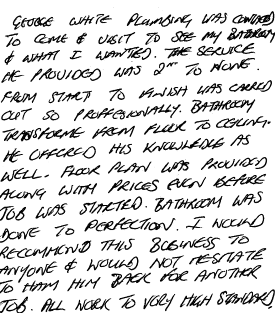 GEORGE WHITE PLUMBING WAS CONTACTED
TO COME & VISIT TO SEE MY BATHROOM
& WHAT I WANTED. THE SERVICE
HE PROVIDED WAS 2ND TO NONE.
FROM START TO FINISH WAS CARRIED
OUT SO PROFFESIONALLY. BATHROOM
TRANSFORME FROM FLOOR TO CEILING.
HE OFFERED HIS KNOWLEDGE AS
WELL. FLOOR PLAN WAS PROVIDED
ALONG WITH PRICES EVEN BEFORE
JOB WAS STARTED. BATHROOM WAS
DONE TO PERFECTION. I WOULD
RECOMMEND THIS BUSINESS TO
ANYONE & WOULD NOT HESITATE
TO HAVE HIM BACK FOR ANOTHER
JOB. ALL WORK TO VERY HIGH STANDARD